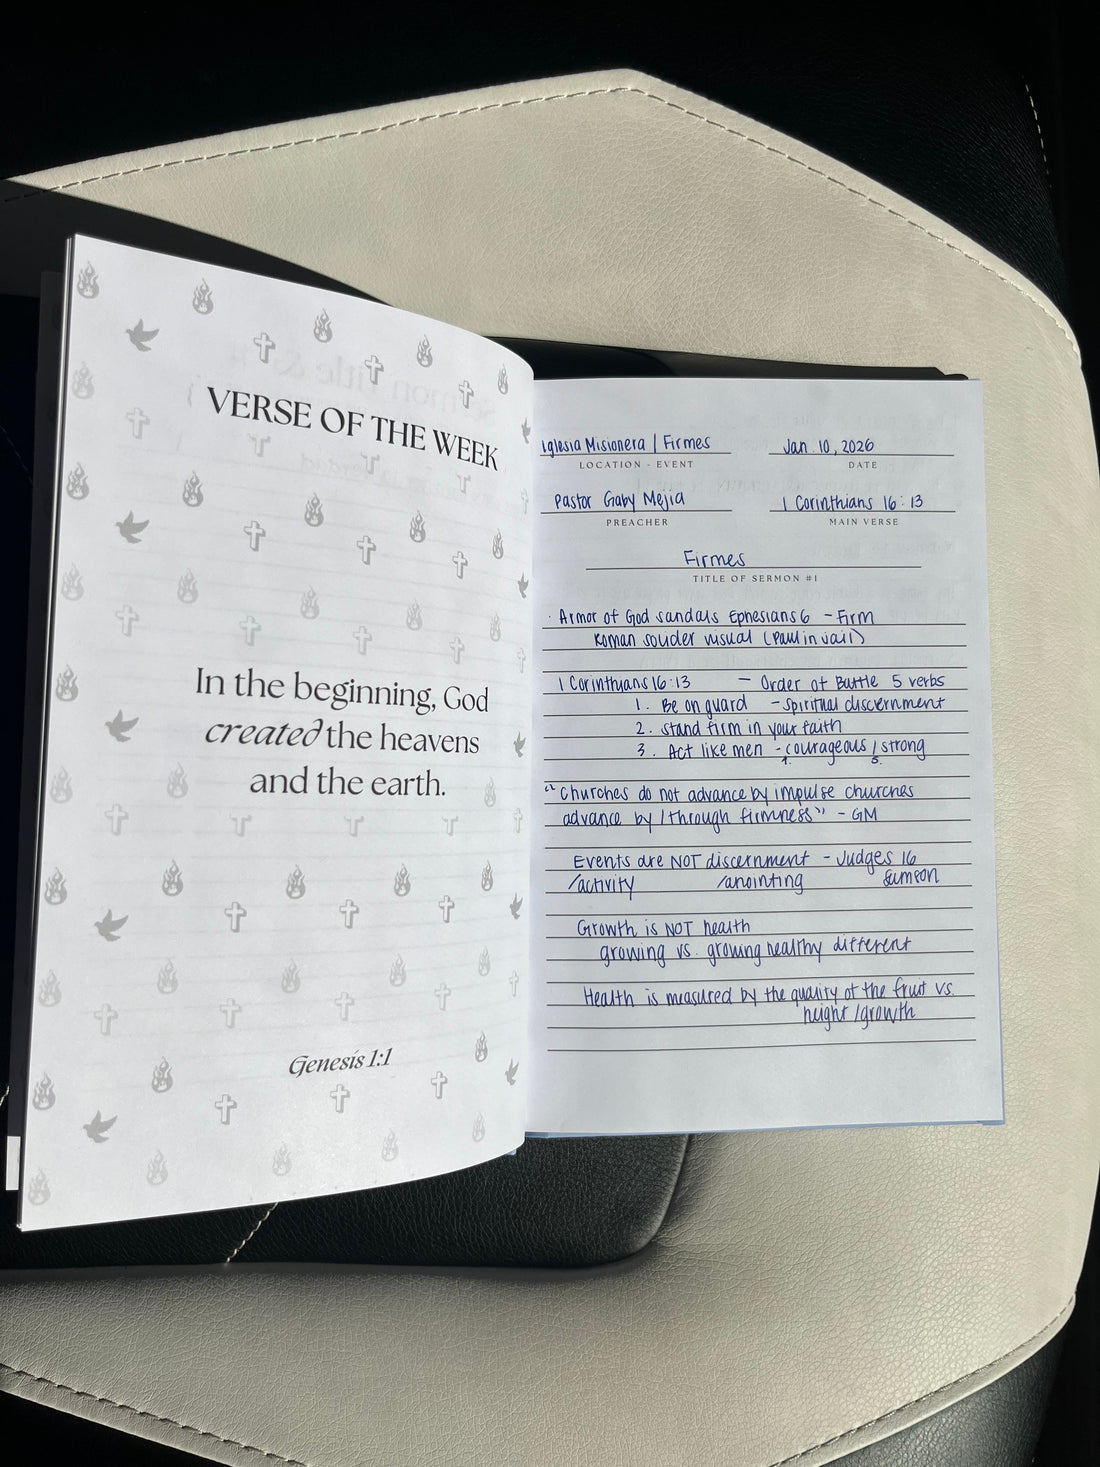 VERSE OF THE WEEK
In the beginning, God
created the heavens
and the earth.
Genesis 1:1
Iglesia Misionera | Firmes
LOCATION - EVENT
Jan. 10, 2026
DATE
Pastor Gaby Mejia
PREACHER
1 Corinthians 16:13
MAIN VERSE
Firmes
TITLE OF SERMON #1
· Armor of God sandals Ephesians 6 - Firm
Roman soldier visual (Paul in jail)
1 Corinthians 16:13 - Order of Battle 5 verbs
1. Be on guard - spiritual discernment
2. stand firm in your faith
3. Act like men - courageous / strong
4. 5.
"Churches do not advance by impulse churches
advance by / through firmness" - GM
Events are NOT discernment - Judges 16
/activity /anointing Samson
Growth is NOT health
growing vs. growing healthy different
Health is measured by the quality of the fruit vs.
height / growth